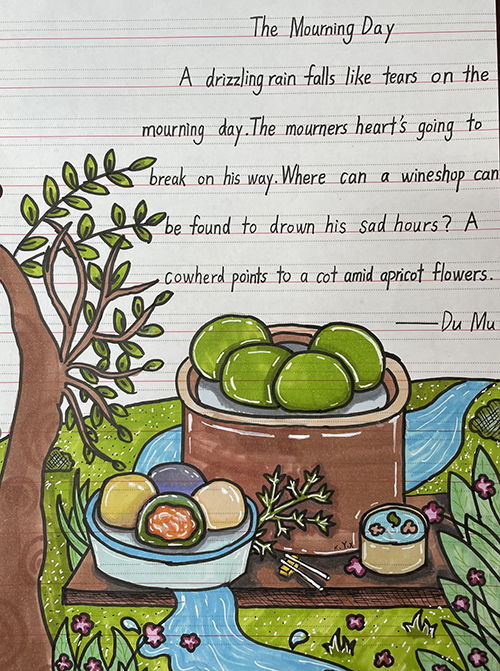 The Mourning Day
A drizzling rain falls like tears on the
mourning day. The mourners heart's going to
break on his way. Where can a wineshop can
be found to drown his sad hours? A
cowherd points to a cot amid apricot flowers.
——Du Mu